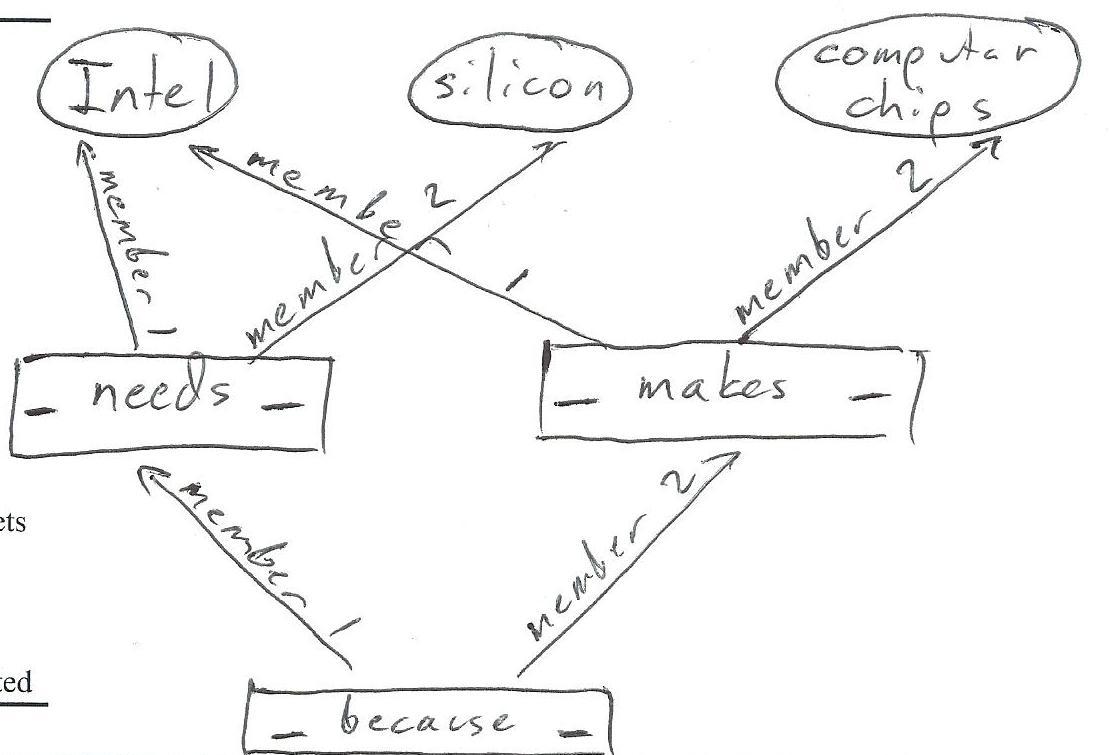 Intel
silicon
computar
chips
member 1
membe r 1
member 2
member 2
_ needs _
_ makes _
ets
member 1
member 2
ted
_ because _